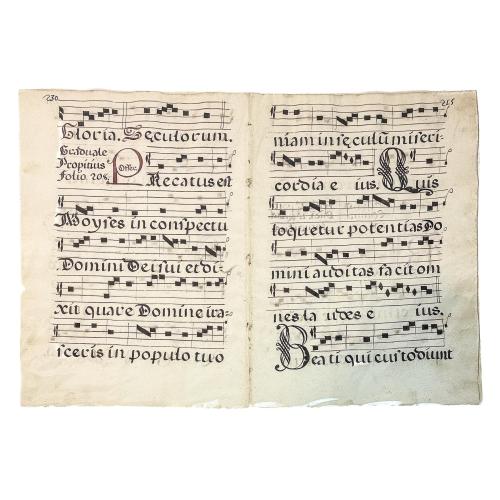 230.
Gloria. Seculorum.
Graduale
Propitius
folio. 208.
Offer.
PRecatus est
Moyses in conspectu
Domini Dei sui et di-
xit quare Domine ira-
sceris in populo tuo
215
niam in seculũ miseri-
cordia e ius. Quis
loquetur potentias Do
mini auditas facit om
nes la udes e ius.
Beati qui custodiunt